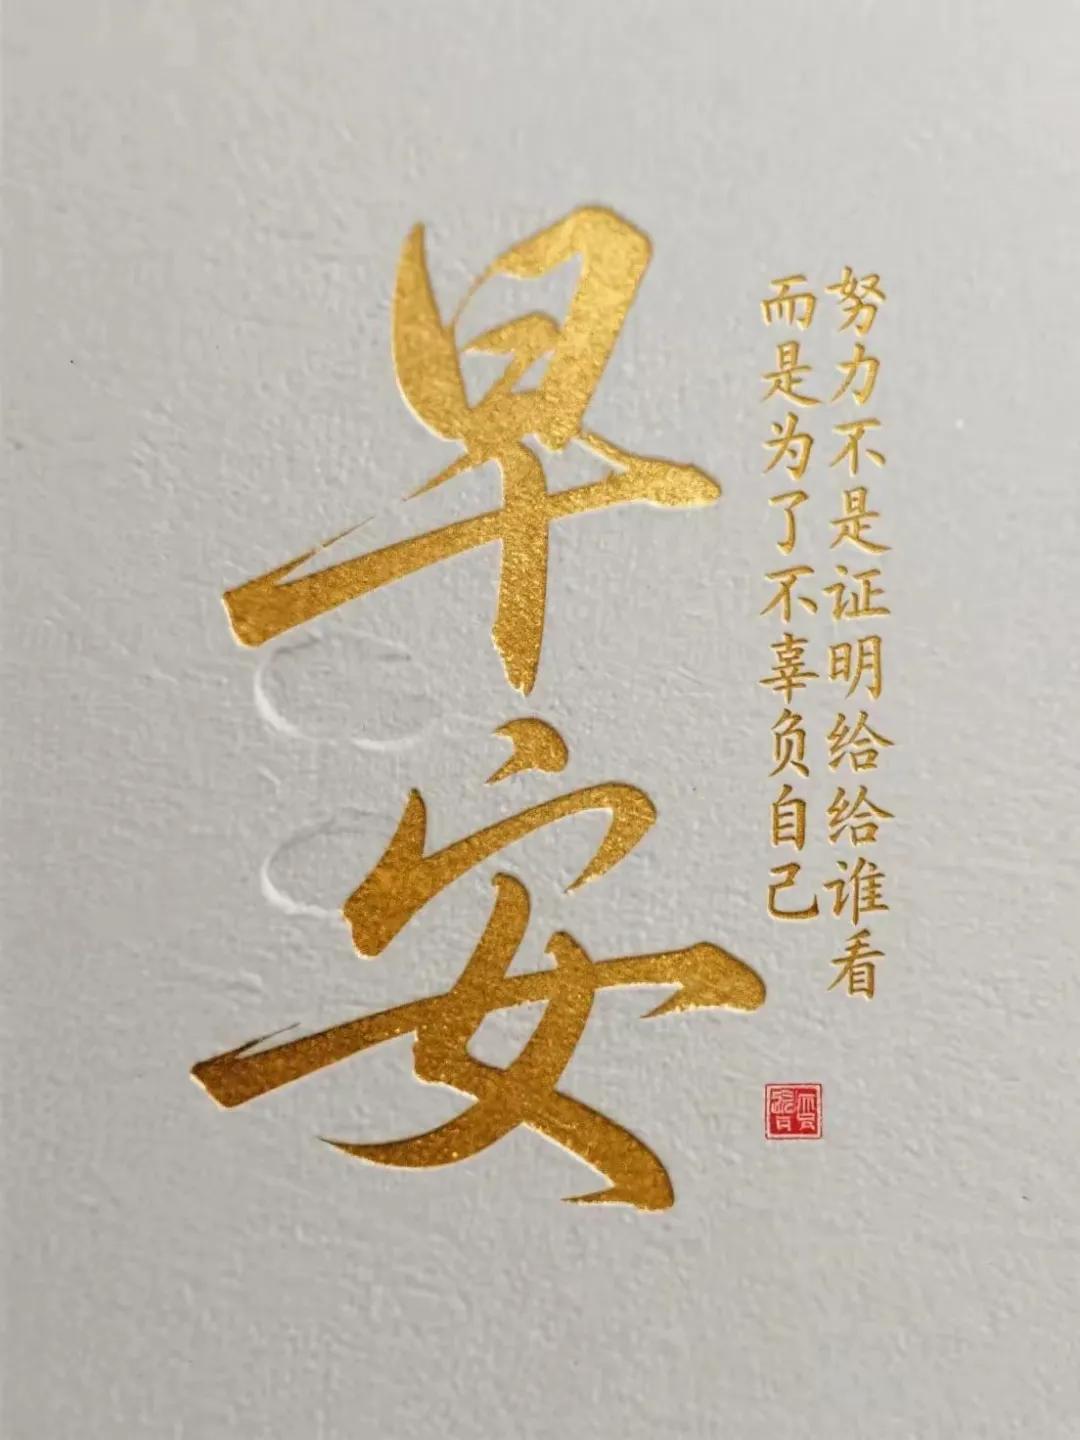 早安
努力不是证明给给谁看
而是为了不辜负自己